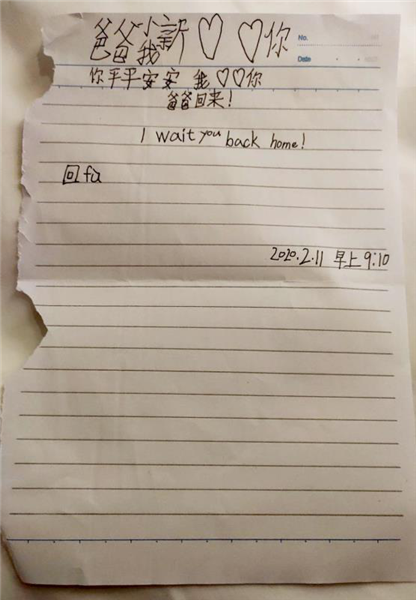 爸爸小新♡♡你
我
No.
Date
你平平安安 我♡♡你
爸爸回来！
I wait you back home!
回fa
2020.2.11 早上9:10